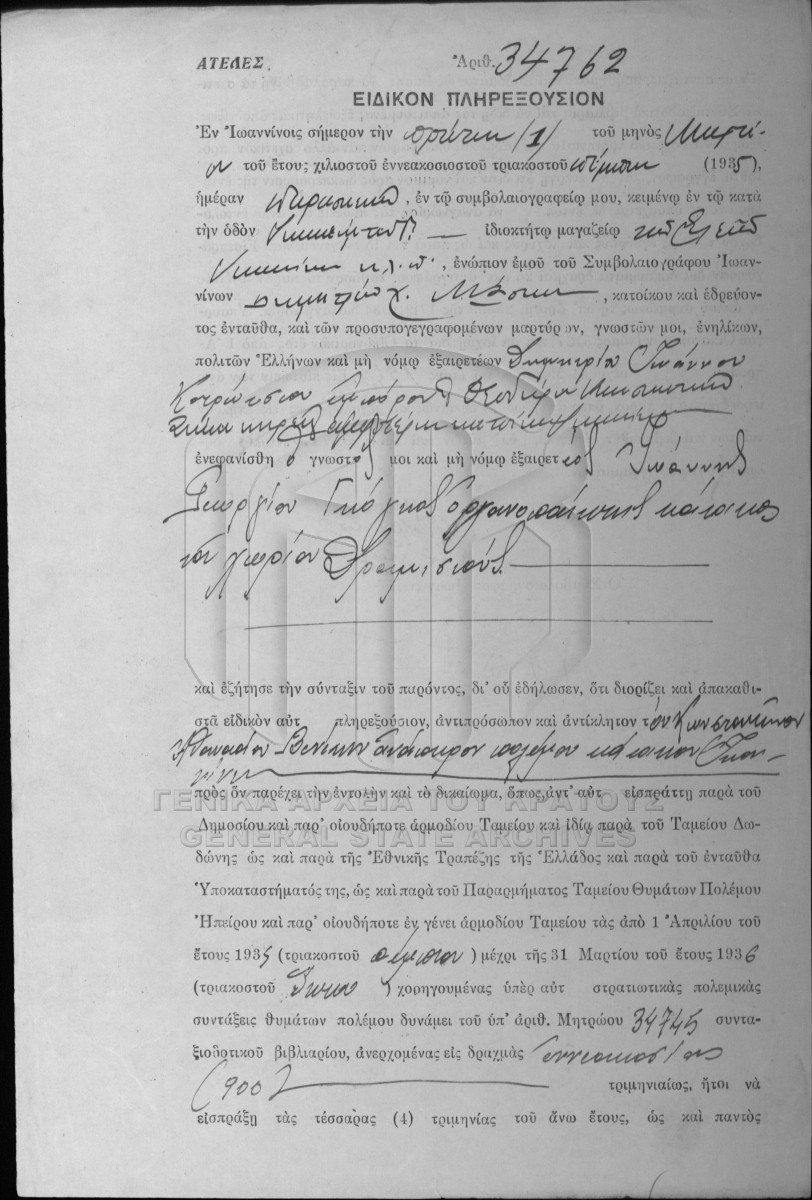 ΑΤΕΛΕΣ Ἀριθ. 34762
ΕΙΔΙΚΟΝ ΠΛΗΡΕΞΟΥΣΙΟΝ
Ἐν Ἰωαννίνοις σήμερον τὴν πρώτην /1/ τοῦ μηνὸς Μαρτί-
ου τοῦ ἔτους χιλιοστοῦ ἐννεακοσιοστοῦ τριακοστοῦ πέμπτου (1935),
ἡμέραν Παρασκευὴν, ἐν τῷ συμβολαιογραφείῳ μου, κειμένῳ ἐν τῷ κατὰ
τὴν ὁδὸν ἰδιοκτήτῳ μαγαζείῳ
κ.λ.π., ἐνώπιον ἐμοῦ τοῦ Συμβολαιογράφου Ἰωαν-
νίνων Δημητρίου Χ. , κατοίκου καὶ ἑδρεύον-
τος ἐνταῦθα, καὶ τῶν προσυπογεγραφομένων μαρτύρων, γνωστῶν μοι, ἐνηλίκων,
πολιτῶν Ἑλλήνων καὶ μὴ νόμῳ ἐξαιρετέων Δημητρίου Ἰωάννου
ἐμπόρου Θεοδώρου
ἐνεφανίσθη ὁ γνωστός μοι καὶ μὴ νόμῳ ἐξαιρετέος Ἰωάννης
Γεωργίου Γκόγκος ὀργανοπαίκτης κάτοικος
τοῦ χωρίου Δραμισιούς
καὶ ἐζήτησε τὴν σύνταξιν τοῦ παρόντος, δι' οὗ ἐδήλωσεν, ὅτι διορίζει καὶ ἀπακαθι-
στᾶ εἰδικὸν αὑτ πληρεξούσιον, ἀντιπρόσωπον καὶ ἀντίκλητον τὸν Κωνσταντῖνον
Ἀθανασίου ἀνάπηρον πολέμου κάτοικον Ἰωαν-
νίνων
πρὸς ὃν παρέχει τὴν ἐντολὴν καὶ τὸ δικαίωμα, ὅπως, ἀντ' αὐτ εἰσπράττῃ παρὰ τοῦ
ΓΕΝΙΚΑ ΑΡΧΕΙΑ ΤΟΥ ΚΡΑΤΟΥΣ
Δημοσίου καὶ παρ' οἱουδήποτε ἁρμοδίου Ταμείου καὶ ἰδίᾳ παρὰ τοῦ Ταμείου Δω-
GENERAL STATE ARCHIVES
δώνης ὡς καὶ παρὰ τῆς Ἐθνικῆς Τραπέζης τῆς Ἑλλάδος καὶ παρὰ τοῦ ἐνταῦθα
Ὑποκαταστήματός της, ὡς καὶ παρὰ τοῦ Παραρμήματος Ταμείου Θυμάτων Πολέμου
Ἠπείρου καὶ παρ' οἱουδήποτε ἐν γένει ἁρμοδίου Ταμείου τὰς ἀπὸ 1 Ἀπριλίου τοῦ
ἔτους 1935 (τριακοστοῦ πέμπτου) μέχρι τῆς 31 Μαρτίου τοῦ ἔτους 1936
(τριακοστοῦ ἕκτου) χορηγουμένας ὑπὲρ αὐτ στρατιωτικὰς πολεμικὰς
συντάξεις θυμάτων πολέμου δυνάμει τοῦ ὑπ' ἀριθ. Μητρώου 34745 συντα-
ξιοδοτικοῦ βιβλιαρίου, ἀνερχομένας εἰς δραχμὰς ἐννεακοσίας
(900) τριμηνιαίως, ἤτοι νὰ
εἰσπράξῃ τὰς τέσσαρας (4) τριμηνίας τοῦ ἄνω ἔτους, ὡς καὶ παντὸς